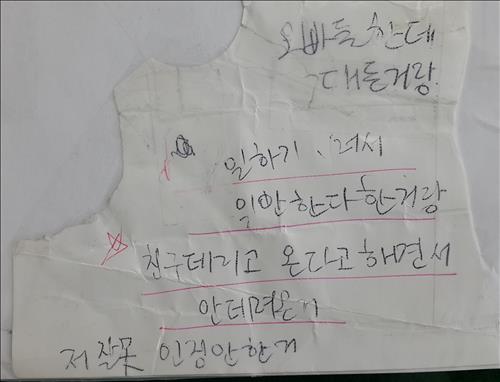 오빠들한테
대든거랑
일하기 려시
일안한다한거랑
친구데리고 온다고해면서
안데려온거
저잘못 인정안한거